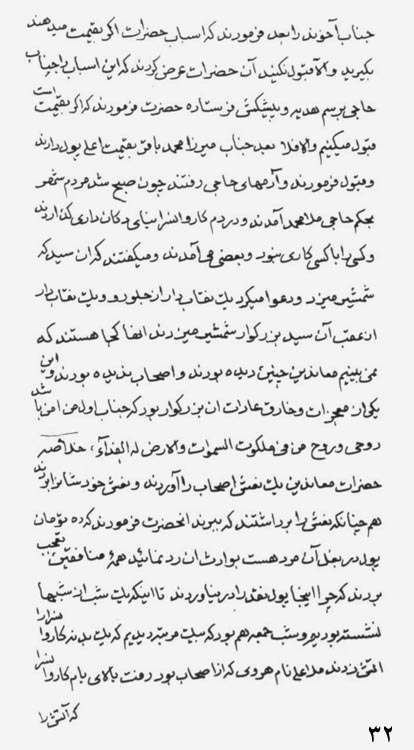 جناب آخوند را بعد فرمودند که اسباب حضرات اگر بقیمت میدهند
بگیرید و الا قبول نکنید آن حضرات عرض کردند که این اسباب را جناب
حاجی برسم هدیه و پیشکش فرستاده حضرت فرمودند که اگر بقیمت است
قبول میکنیم و الا فلا بعد جناب میرزا محمد باقر بقیمت اعلی پول دادند
و قبول فرمودند و آدمهای حاجی رفتند چون صبح شد مردم شهر
بحکم حاجی ملا محمد آمدند و در دم کاروانسرا بنای دکان داری گذاردند
و کسی را با کسی کاری نبود و بعضی می آمدند و میگفتند که ان سید که
شمشیر میزد و دعوا میکرد یک نقاب دار از جلو رو و یک نقاب دار
از عقب آن سید بزرگوار شمشیر میزدند انها کجا هستند که
نمی بینیم معاندین چنین دیده بودند و اصحاب ندیده بودند و این
یکی از معجزات و خارق عادات ان بزرگوار بود که جناب اول من امن باشد
روحی و روح من فی ملکوت السموات والارض له الفداء ، خلاصه
حضرات معاندین یک نعش اصحاب را آوردند و نعش خودشان را بردند
هم چنانکه نعش را برداشتند که ببرند انحضرت فرمودند که ده تومان
پول در بغل آن مرد هست بوارث ان رد نمائید همهٔ منافقین بتعجب
بودند که چرا اینجا پول نقد را در نیاوردند تا اینکه یک شب از شبها
نشسته بودیم و شب جمعه هم بود که بیک مرتبه دیدیم که یک بدنه کاروانسرا را
آتش زدند ملا علی نام هروی که از اصحاب بود رفت بالای بام کاروانسرا
که آتش را
۳۲